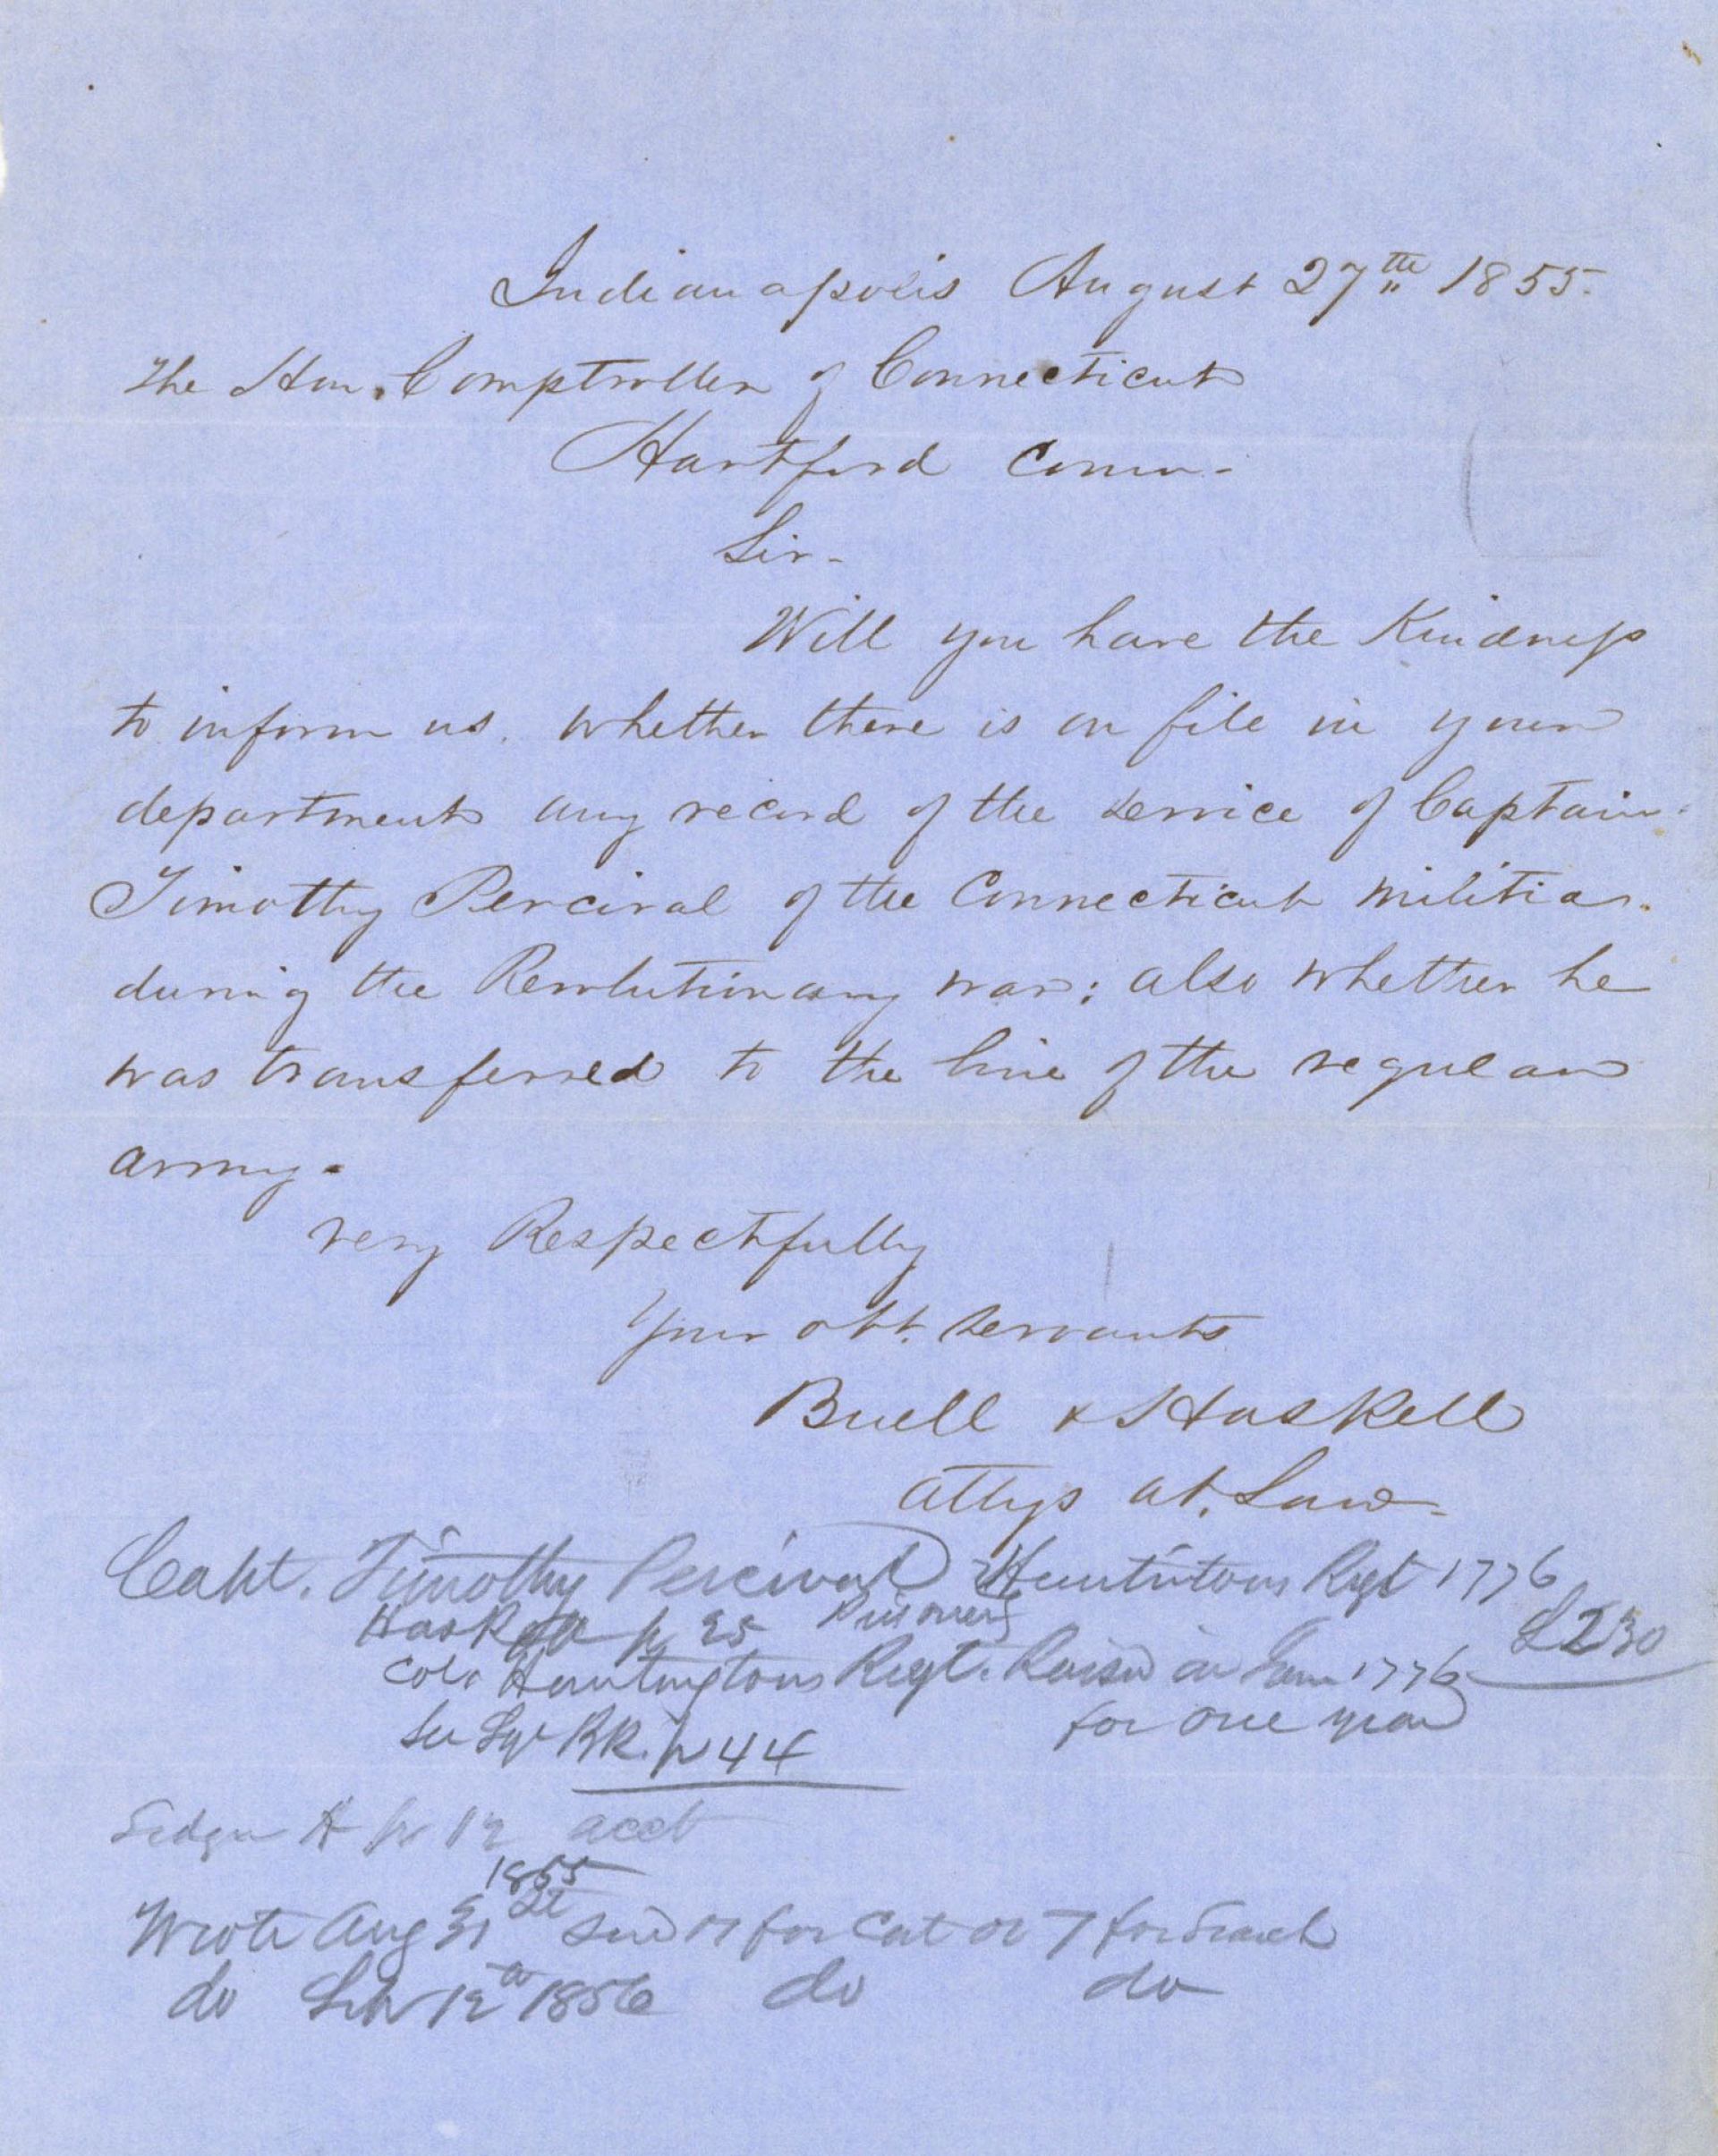 Indianapolis August 27th 1855.
The Hon. Comptroller of Connecticut
Hartford Conn-
Sir-
Will you have the Kindness
to inform us. whether there is on file in your
department any record of the service of Captain
Timothy Percival of the Connecticut militia.
during the Revolutionary war; also whether he
was transferred to the line of the regular
army.
very Respectfully
Your obt. servants
Buell & Haskell
Attys at. Law-
Capt. Timothy Percival Huntintons Regt 1776
Haskell p 25 Prisoners £230
Colo Huntingtons Regt. Raised in Jan 1776
for one year
RR. p 44
H p 12 acct
1855
Wrote Aug 31st for Cat or 7 for Search
do 12th 1856 do do